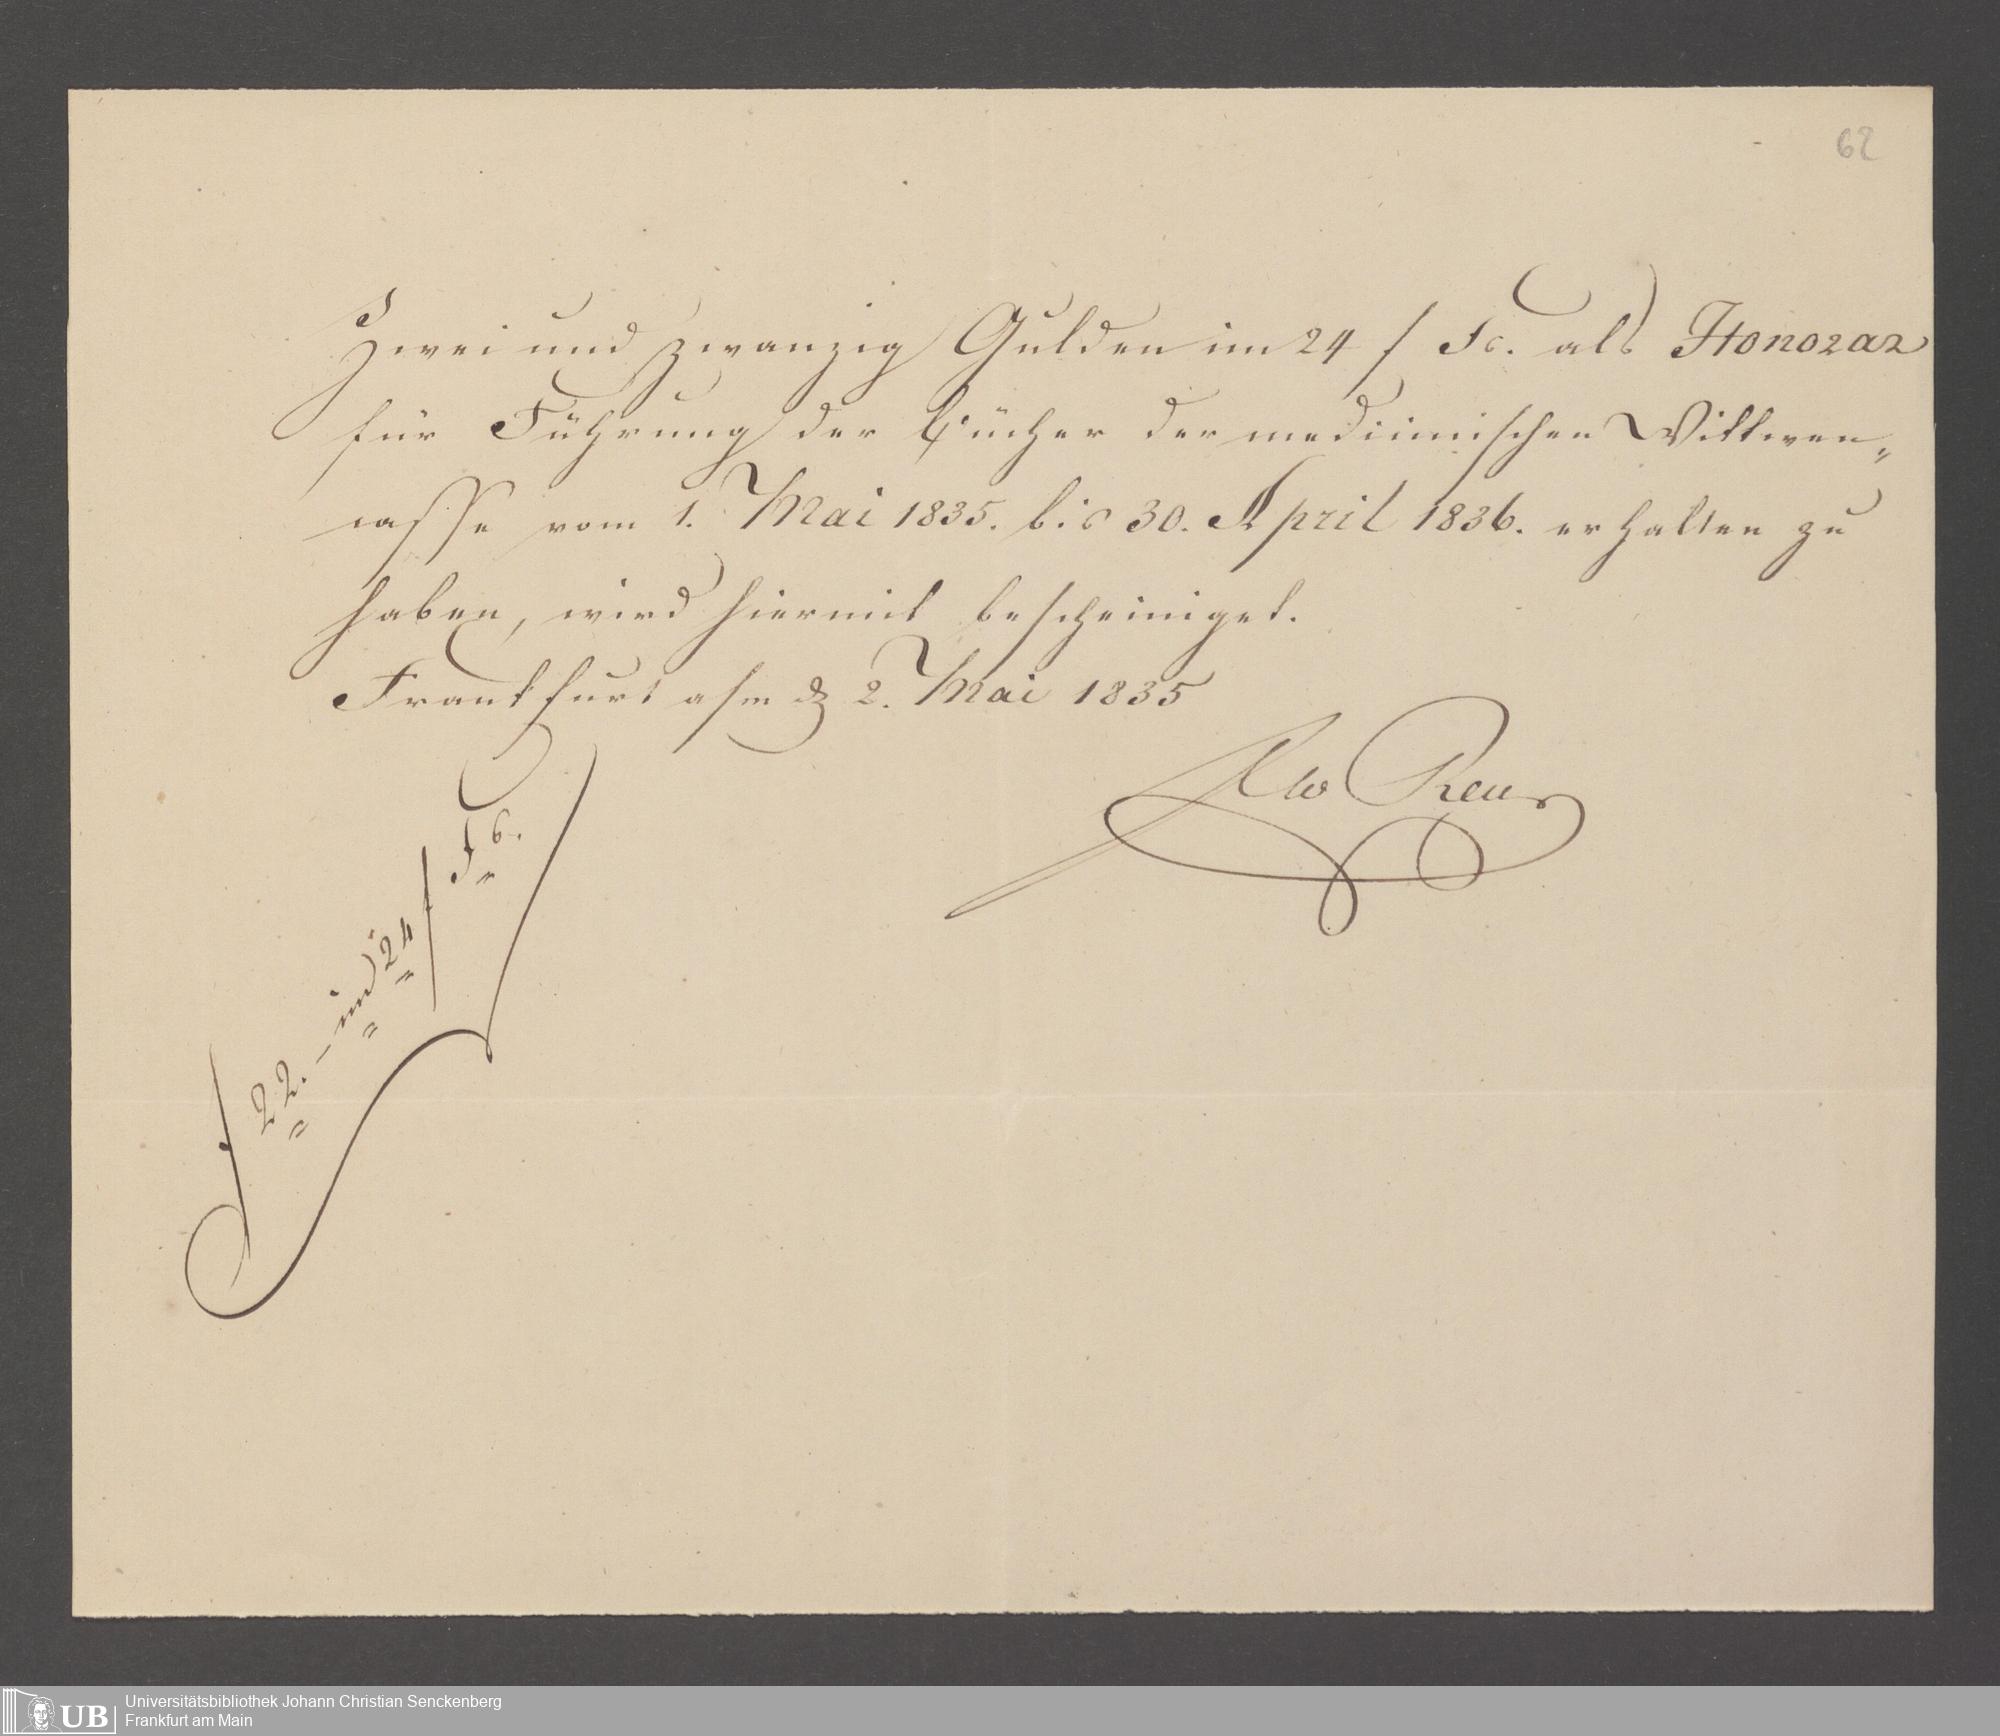 62
Zwei und zwanzig Gulden im 24 f Fs. als Honorar
für Führung der Bücher der medicinischen Wittwen„
casse vom 1. Mai 1835. bis 30. April 1836. erhalten zu
haben, wird hiermit bescheiniget.
Frankfurt a/m d 2. Mai 1835
Reus
f 22. – im 24 f Fs.
UB Universitätsbibliothek Johann Christian Senckenberg
Frankfurt am Main